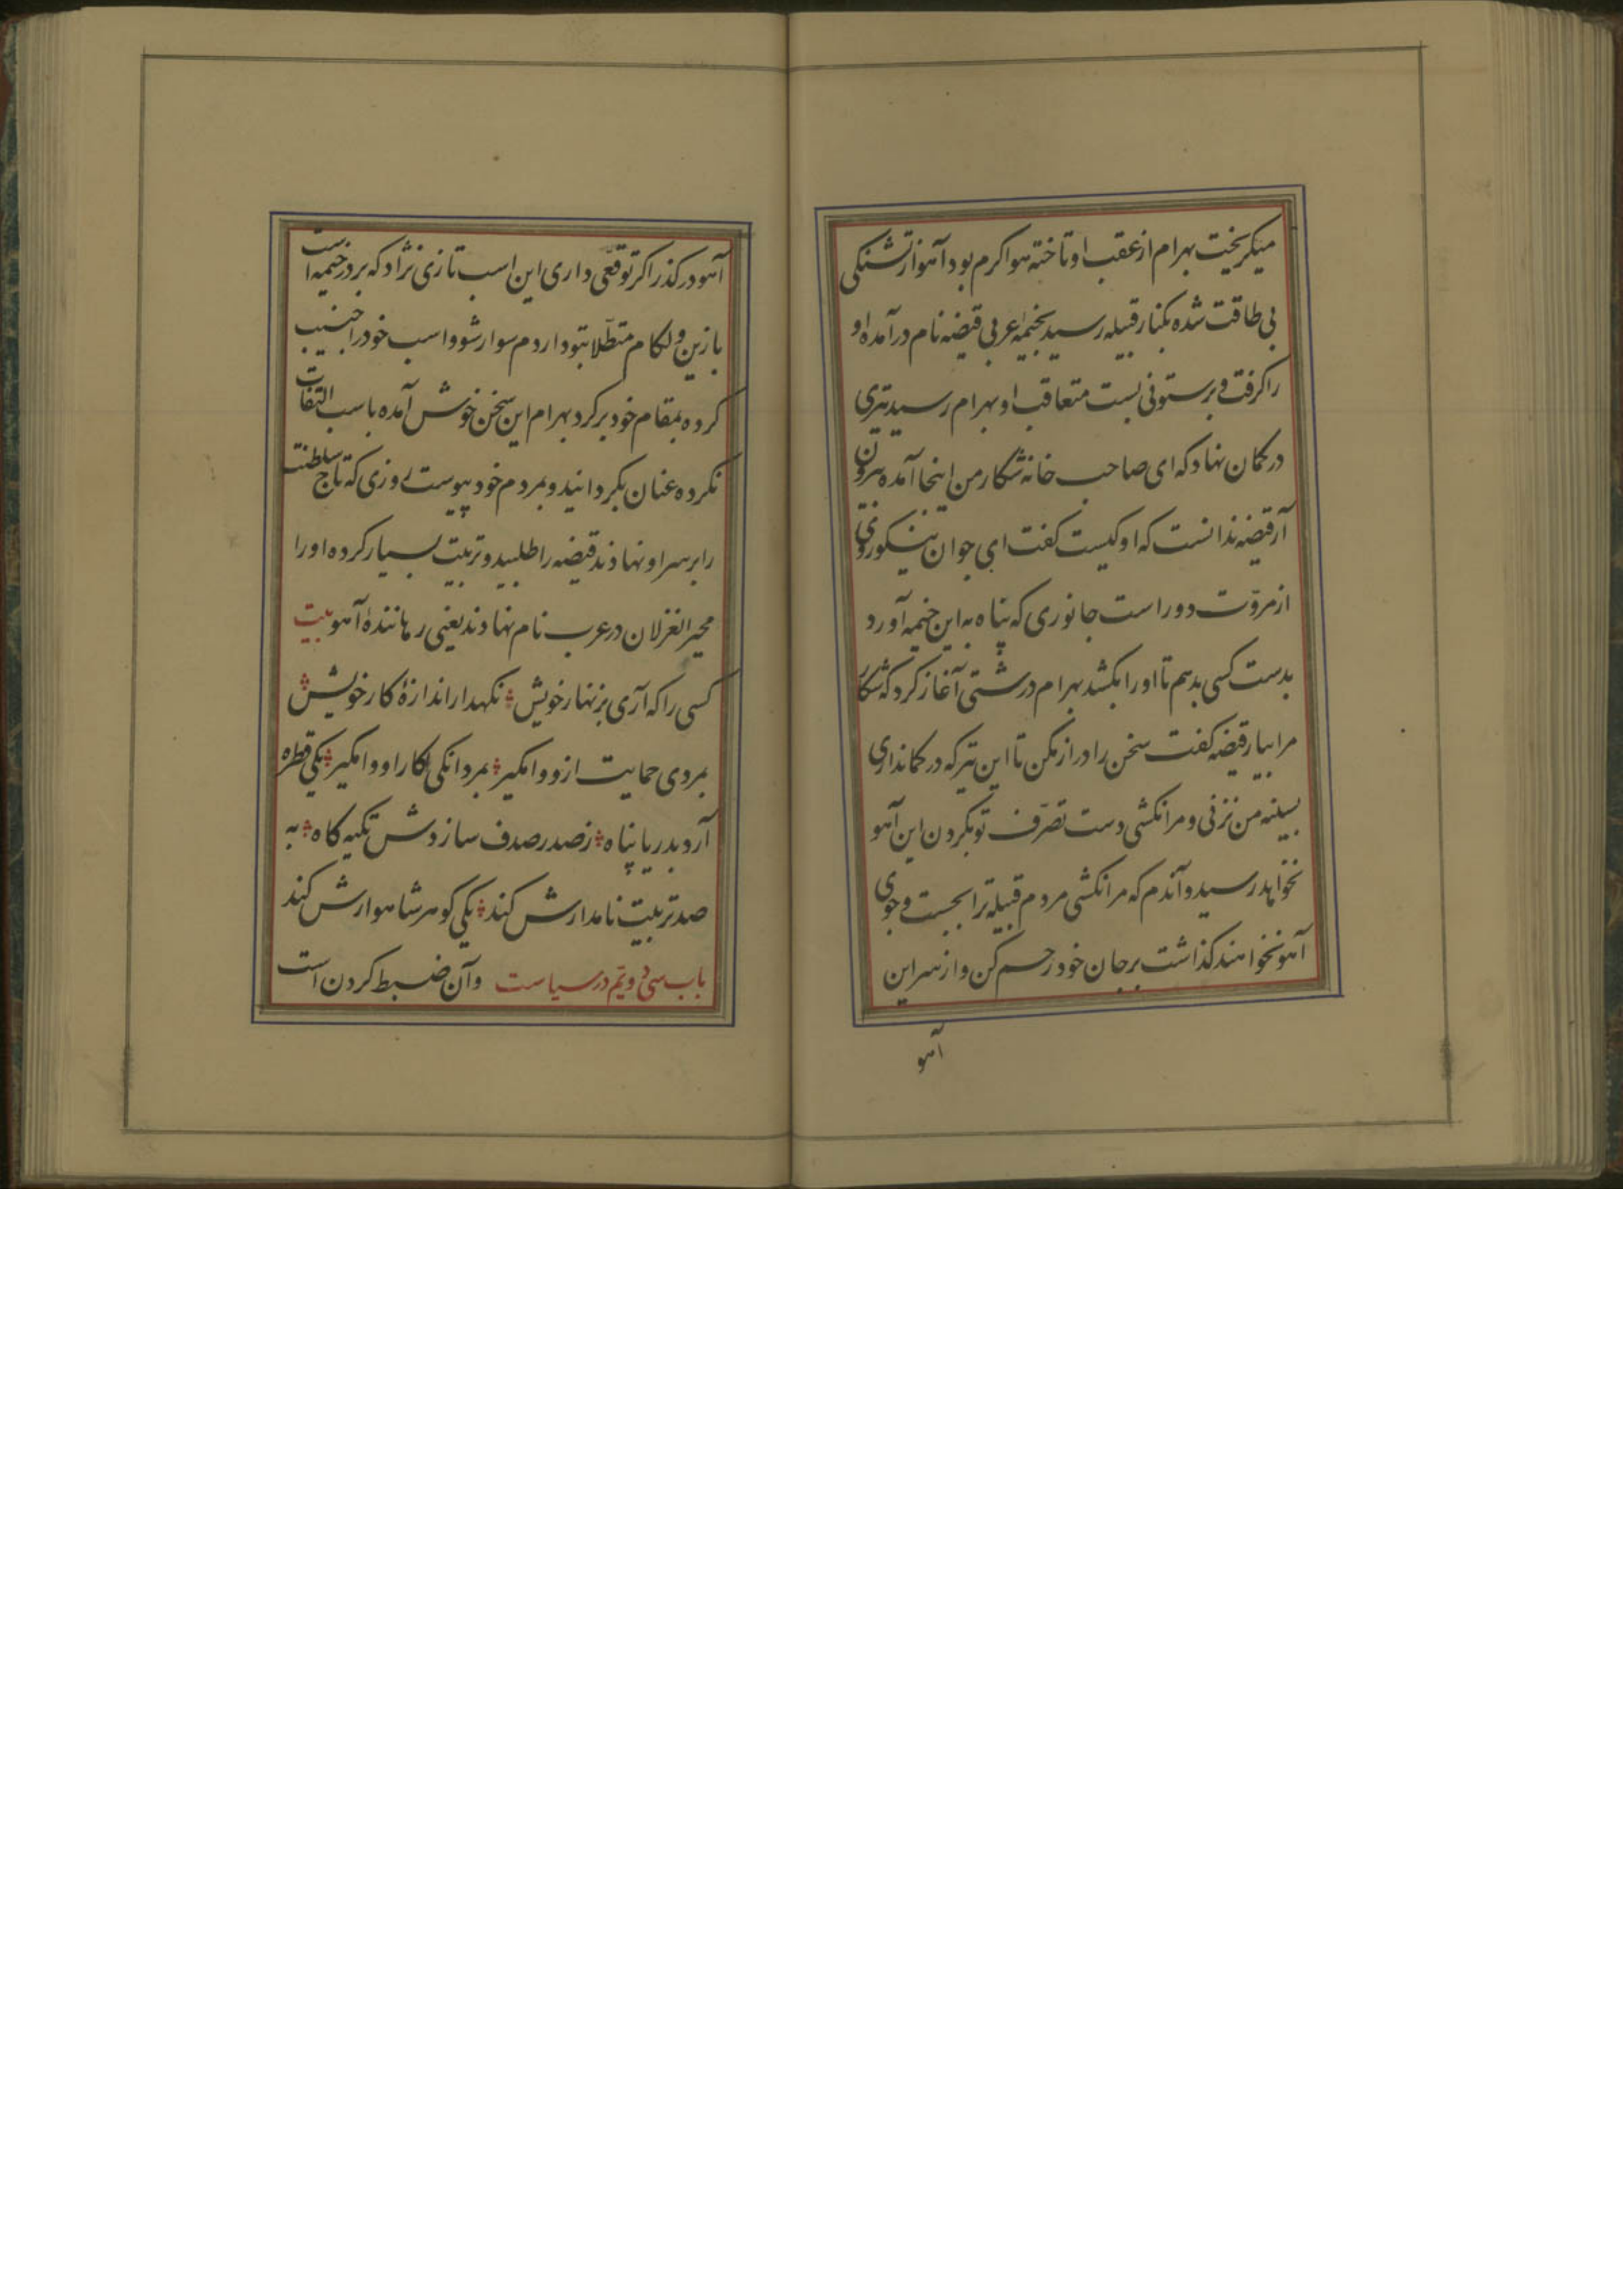 میکریخت بهرام از عقب او تاخته هوا کرم بود آهو از تشنکی
بی طاقت شده بکنار قبیله رسید بخیمه اعربی قیضه نام درآمده او
را کرفت و بر ستونی بست متعاقب او بهرام رسید تیری
در کمان نهاد که ای صاحب خانه شکار من اینجا آمده بیرون
آر قیضه ندانست که او کیست کفت ای جوان نیکوروی
از مروّت دور است جانوری که پناه به این خیمه آورد
بدست کسی بدهم تا او را بکشد بهرام درشتی آغاز کرد که شکار
مرا بیار قیضه کفت سخن را دراز مکن تا این تیر که در کمانداری
بسینه من نزنی و مرا نکشی دست تصرّف تو بکردن این آهو
نخواهد رسید و آندم که مرا نکشی مردم قبیله ترا بجست و جوی
آهو نخواهند کذاشت بر جان خود رحم کن و از سر این
آهو
آهو درکذر اکر توقعّی داری این اسب تازی نژاد که بر در خیمه است
با زین و لکام متطّلا بتو دادم سوار شو و اسب خود را جنیب
کرده بمقام خود برکرد بهرام این سخن خوش آمده باسب التفات
نکرده عنان بکردانید و بمردم خود پیوست روزی که تاج سلطنت
را بر سر او نهادند قیضه را طلبید و تربیت بسیار کرده او را
مجیر الغزلان در عرب نام نهادند یعنی رهاننده آهو بیت
کسی را که آری بزنهار خویش نکهدار اندازهٔ کار خویش
بمردی حمایت ازو وامکیر بمردانکی کار او وامکیر یکی قطره
آرد بدریا پناه ز صدر صدف سازدش تکیه کاه به
صد تربیت نامدارش کند یکی کوهر شاهوارش کند
باب سی و دویّم در سیاست و آن ضبط کردن است